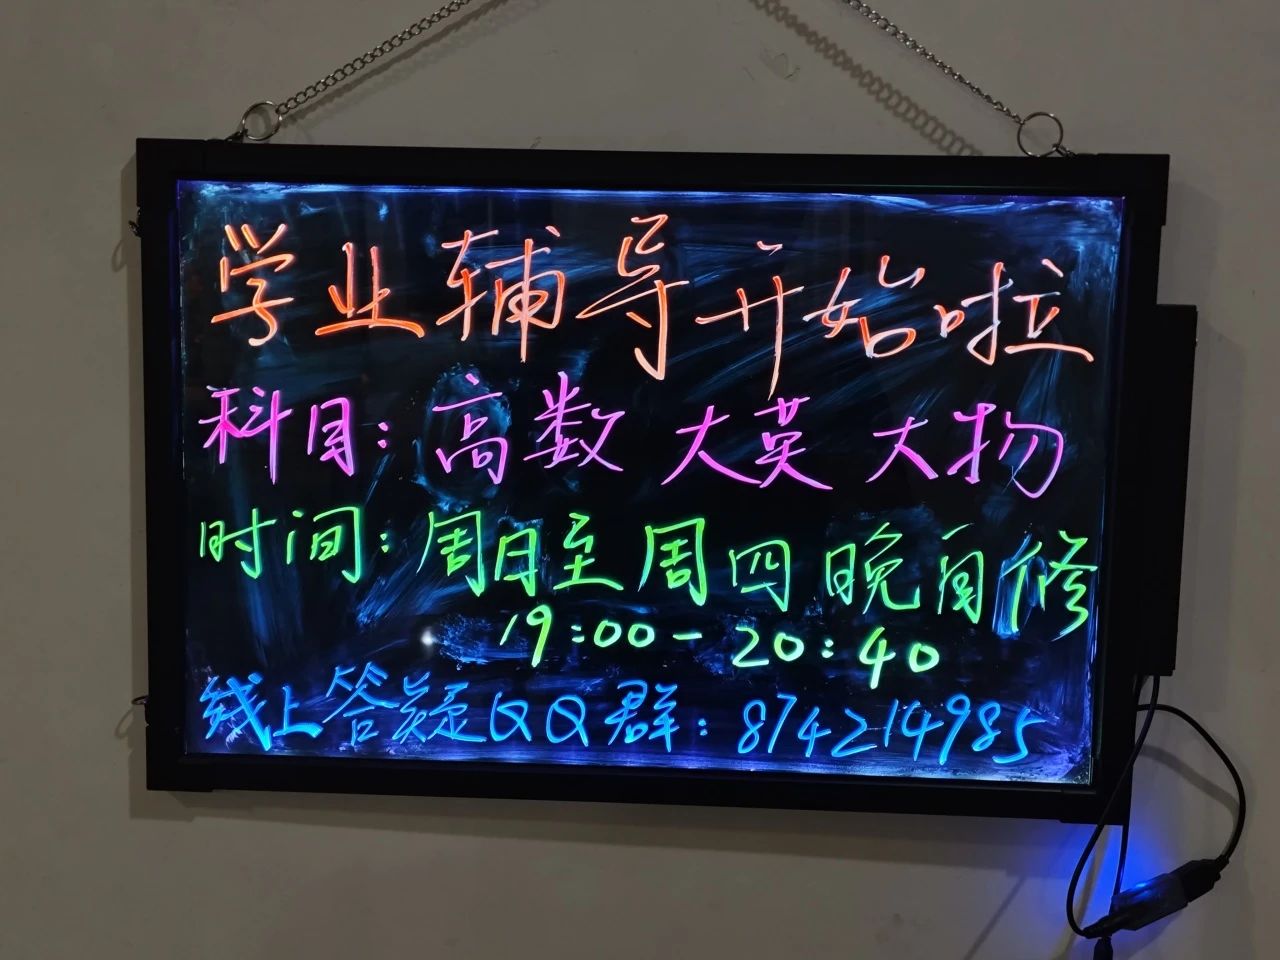 学业辅导开始啦
科目:高数 大英 大物
时间:周日至周四 晚自修
19:00-20:40
线上答疑QQ群:874214985